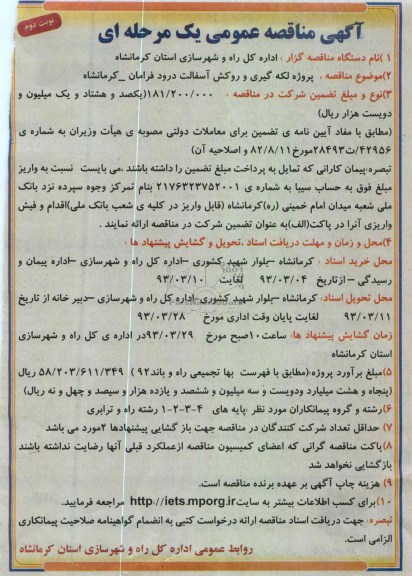 نوبت دوم
آگهی مناقصه عمومی یک مرحله ای
۱)نام دستگاه مناقصه گزار : اداره کل راه و شهرسازی استان کرمانشاه
۲)موضوع مناقصه : پروژه لکه گیری و روکش آسفالت درود فرامان _کرمانشاه
۳)نوع و مبلغ تضمین شرکت در مناقصه : ۱۸۱/۲۰۰/۰۰۰(یکصد و هشتاد و یک میلیون و
دویست هزار ریال)
(مطابق با مفاد آیین نامه ی تضمین برای معاملات دولتی مصوبه ی هیأت وزیران به شماره ی
۴۲۹۵۶/ت۲۸۴۹۳مورخ۸۲/۸/۱۱ و اصلاحیه آن)
تبصره:پیمان کارانی که تمایل به پرداخت مبلغ تضمین را داشته باشند ،می بایست نسبت به واریز
مبلغ فوق به حساب سیبا به شماره ی ۲۱۷۶۳۲۳۷۵۲۰۰۱ بنام تمرکز وجوه سپرده نزد بانک
ملی شعبه میدان امام خمینی (ره)کرمانشاه (قابل واریز در کلیه ی شعب بانک ملی)اقدام و فیش
واریزی آنرا در پاکت(الف)به عنوان تضمین شرکت در مناقصه ارائه نمایند .
۴)محل و زمان و مهلت دریافت اسناد ،تحویل و گشایش پیشنهاد ها :
محل خرید اسناد : کرمانشاه –بلوار شهید کشوری –اداره کل راه و شهرسازی –اداره پیمان و
رسیدگی – ازتاریخ ۹۳/۰۳/۰۴ لغایت ۹۳/۰۳/۱۰
محل تحویل اسناد: کرمانشاه –بلوار شهید کشوری–اداره کل راه و شهرسازی –دبیر خانه از تاریخ
۹۳/۰۳/۱۱ لغایت پایان وقت اداری مورخ ۹۳/۰۳/۲۸
زمان گشایش پیشنهاد ها: ساعت۱۰صبح مورخ ۹۳/۰۳/۲۹در اداره ی کل راه و شهرسازی
استان کرمانشاه
۵)مبلغ برآورد پروژه(مطابق با فهرست بها تجمیعی راه و باند۹۲ ) ۵۸/۲۰۳/۶۱۱/۳۴۹ ریال
(پنجاه و هشت میلیارد ودویست و سه میلیون و ششصد و یازده هزار و سیصد و چهل و نه ریال)
۶)رشته و گروه پیمانکاران مورد نظر :پایه های ۴-۳-۲-۱ رشته راه و ترابری
۷) حداقل تعداد شرکت کنندگان در مناقصه جهت باز گشایی پیشنهادها ۲مورد می باشد
۸)پاکت مناقصه گرانی که اعضای کمیسیون مناقصه ازعملکرد قبلی آنها رضایت نداشته باشند
بازگشایی نخواهد شد
۹) هزینه چاپ آگهی بر عهده برنده مناقصه است.
۱۰)برای کسب اطلاعات بیشتر به سایت http://iets.mporg.ir مراجعه فرمایید.
تبصره: جهت دریافت اسناد مناقصه ارائه درخواست کتبی به انضمام گواهینامه صلاحیت پیمانکاری
الزامی است.
روابط عمومی اداره کل راه و شهرسازی استان کرمانشاه